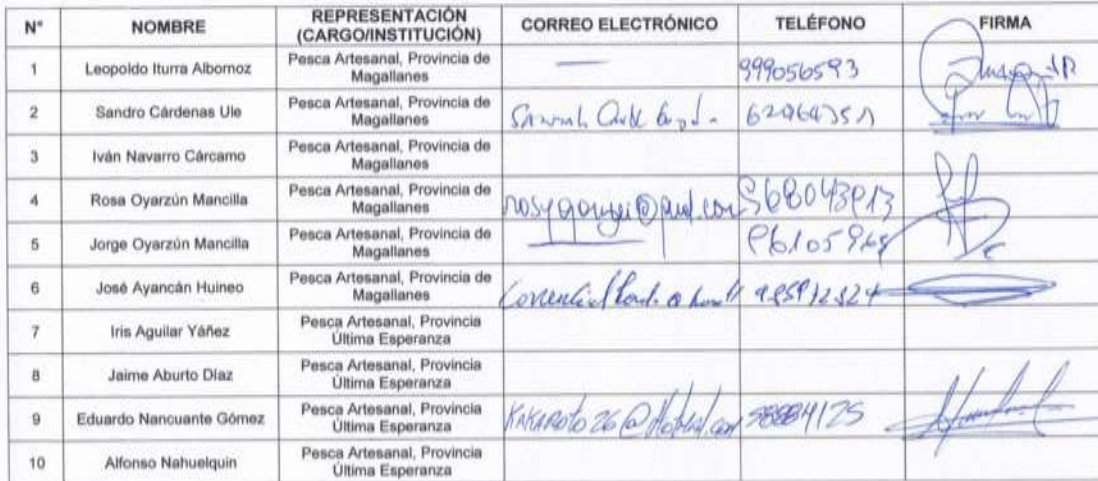 N° NOMBRE REPRESENTACIÓN (CARGO/INSTITUCIÓN) CORREO ELECTRÓNICO TELÉFONO FIRMA
1 Leopoldo Iturra Albornoz Pesca Artesanal, Provincia de Magallanes — 999056593
2 Sandro Cárdenas Ule Pesca Artesanal, Provincia de Magallanes
3 Iván Navarro Cárcamo Pesca Artesanal, Provincia de Magallanes
4 Rosa Oyarzún Mancilla Pesca Artesanal, Provincia de Magallanes
5 Jorge Oyarzún Mancilla Pesca Artesanal, Provincia de Magallanes
6 José Ayancán Huineo Pesca Artesanal, Provincia de Magallanes
7 Iris Aguilar Yáñez Pesca Artesanal, Provincia Última Esperanza
8 Jaime Aburto Díaz Pesca Artesanal, Provincia Última Esperanza
9 Eduardo Nancuante Gómez Pesca Artesanal, Provincia Última Esperanza
10 Alfonso Nahuelquin Pesca Artesanal, Provincia Última Esperanza